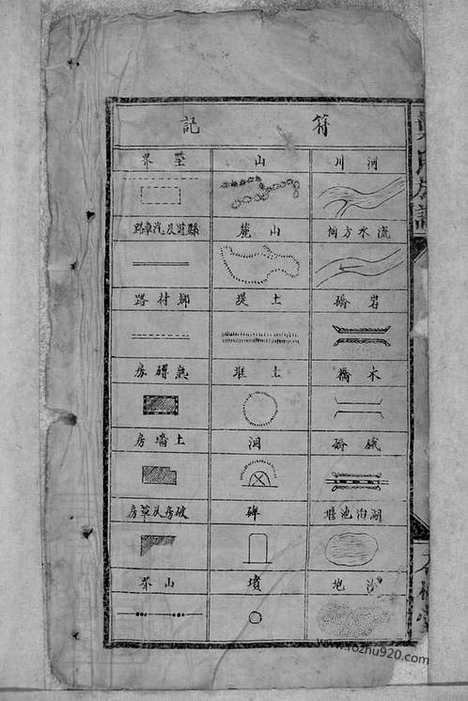 符記
河川
山
塋界
流水方向
山麓
縣道及汽車路
岩礄
土堤
鄉村路
木橋
土堆
熟磚房
鐵礄
洞
土墻房
湖泊池塘
碑
破房及草房
沙地
墳
山界
www.yozhu920.com